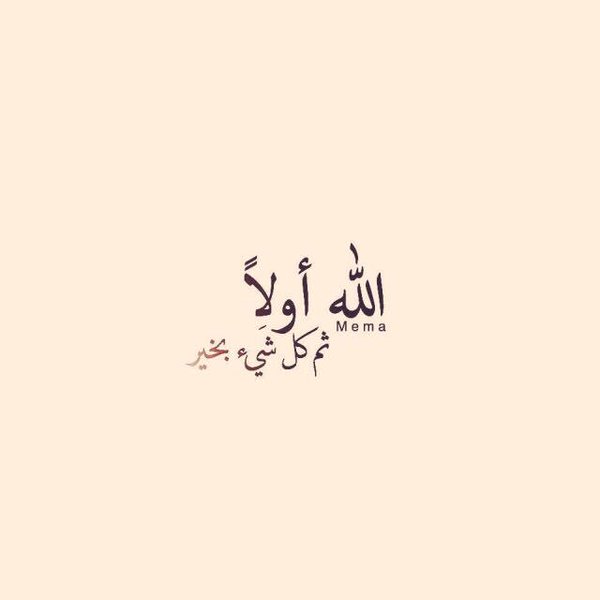 الله أولاً
Mema
ثم كل شيء بخير